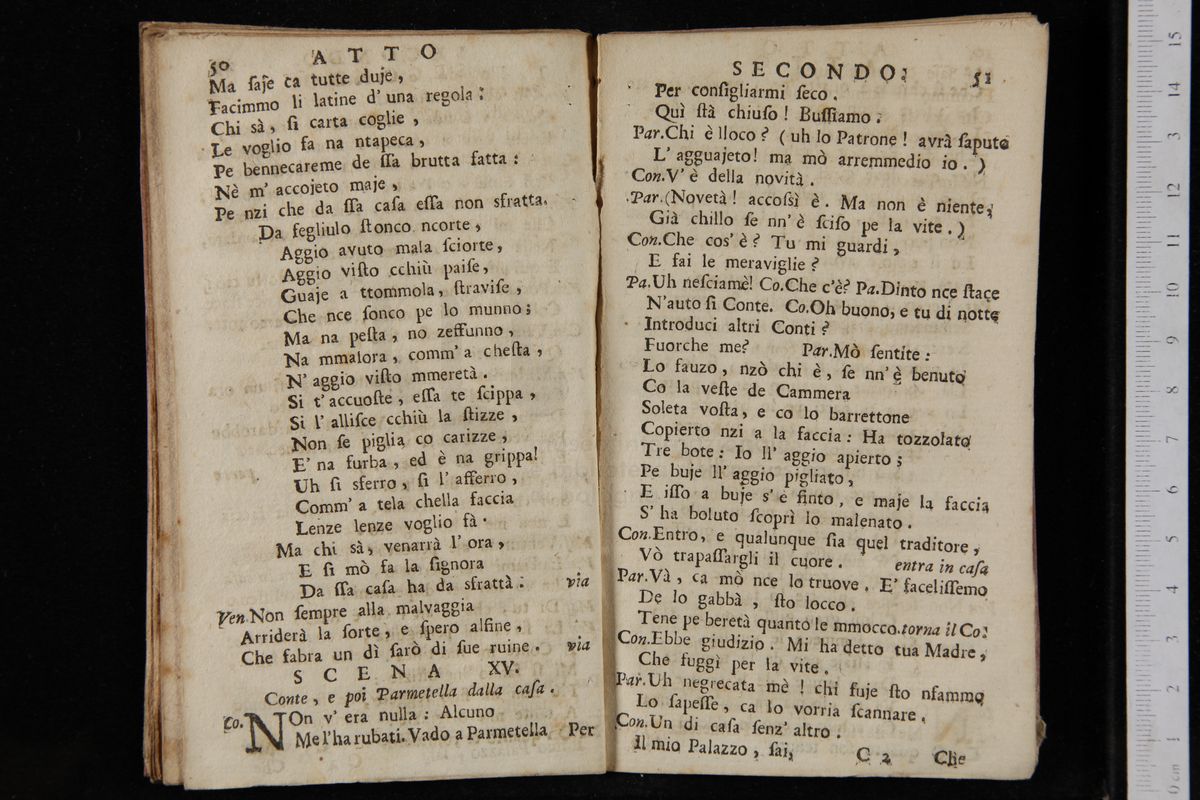 50 ATTO
Ma ſaje ca tutte duje,
Facimmo li latine d'una regola:
Chi sà, ſi carta coglie,
Le voglio fa na ntapeca,
Pe bennecareme de ſſa brutta fatta:
Nè m'accojeto maje,
Pe nzi che da ſſa caſa eſſa non sfratta.
Da fegliulo ſtonco ncorte,
Aggio avuto mala ſciorte,
Aggio viſto cchiù paiſe,
Guaje a ttommola, ſtraviſe,
Che nce ſonco pe lo munno;
Ma na peſta, no zeffunno,
Na mmalora, comm'a cheſta,
N'aggio viſto mmeretà.
Si t'accuoſte, eſſa te ſcippa,
Si l'alliſce cchiù la ſtizze,
Non ſe piglia co carizze,
E' na furba, ed è na grippa!
Uh ſi sferro, ſi l'afferro,
Comm'a tela chella faccia
Lenze lenze voglio fà.
Ma chi sà, venarrà l'ora,
E ſi mò fa la ſignora
Da ſſa caſa ha da sfrattà. via
Ven. Non ſempre alla malvaggia
Arriderà la ſorte, e ſpero alfine,
Che fabra un dì ſarò di ſue ruine. via
SCENA XV.
Conte, e poi Parmetella dalla caſa.
Co. NOn v'era nulla: Alcuno
Me l'ha rubati. Vado a Parmetella
Per
SECONDO. 51
Per conſigliarmi ſeco.
Quì ſtà chiuſo! Buſſiamo.
Par. Chi è lloco? (uh lo Patrone! avrà ſaputo
L'agguajeto! ma mò arremmedio io.)
Con. V'è della novità.
Par. (Novetà! accoſsì è. Ma non è niente,
Già chillo ſe nn'è ſciſo pe la vite.)
Con. Che cos'è? Tu mi guardi,
E fai le meraviglie?
Pa. Uh neſciamè! Co. Che c'è? Pa. Dinto nce ſtace
N'auto ſi Conte. Co. Oh buono, e tu di notte
Introduci altri Conti?
Fuorche me? Par. Mò ſentite:
Lo fauzo, nzò chi è, ſe nn'è benuto
Co la veſte de Cammera
Soleta voſta, e co lo barrettone
Copierto nzi a la faccia: Ha tozzolato
Tre bote: Io ll'aggio apierto;
Pe buje ll'aggio pigliato,
E iſſo a buje s'è finto, e maje la faccia
S'ha boluto ſcoprì lo malenato.
Con. Entro, e qualunque ſia quel traditore,
Vò trapaſſargli il cuore. entra in caſa
Par. Và, ca mò nce lo truove. E' faceliſſemo
De lo gabbà, ſto locco.
Tene pe beretà quanto le mmocco. torna il Co.
Con. Ebbe giudizio. Mi ha detto tua Madre,
Che fuggì per la vite.
Par. Uh negrecata mè! chi fuje ſto nfammo
Lo ſapeſſe, ca lo vorria ſcannare.
Con. Un di caſa ſenz'altro.
Il mio Palazzo, ſai,
C 2 Che